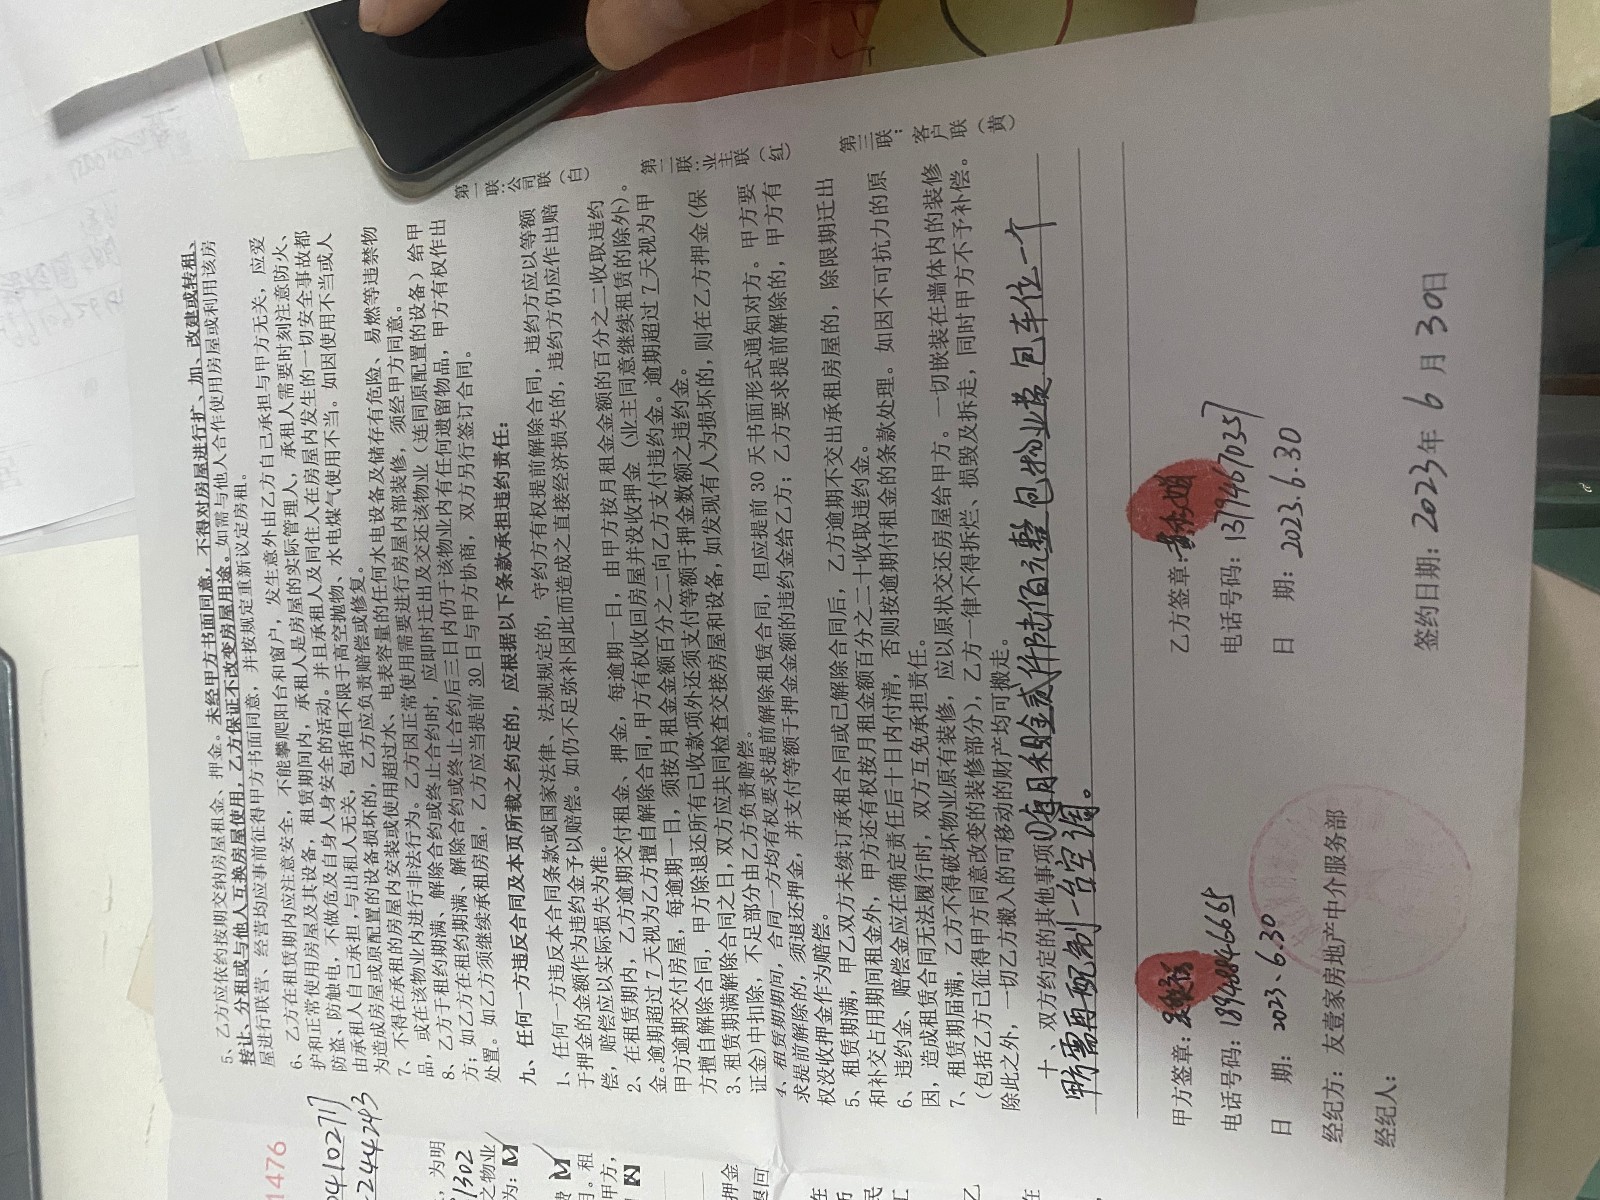 1476
0410271
244243
5、乙方应依约按期交纳房屋租金、押金。未经甲方书面同意,不得对房屋进行扩、加、改建或转租、
转让、分租或与他人互换房屋使用,乙方保证不改变房屋用途。如需与他人合作使用房屋或利用该房
屋进行联营、经营均应事前征得甲方书面同意,并按规定重新议定房租。
6、乙方在租赁期内应注意安全,不能攀爬阳台和窗户,发生意外由乙方自己承担与甲方无关,应爱
护和正常使用房屋及其设备,租赁期间内,承租人是房屋的实际管理人,承租人需要时刻注意防火、
防盗、防触电,不做危及自身人身安全的活动。并且承租人及同住人在房屋内发生的一切安全事故都
由承租人自己承担,与出租人无关,包括但不限于高空抛物、水电煤气使用不当。如因使用不当或人
为造成房屋或原配置的设备损坏的,乙方应负责赔偿或修复。
7、不得在承租的房屋内安装或使用超过水、电表容量的任何水电设备及储存有危险、易燃等违禁物
品,或在该物业内进行非法行为。乙方因正常使用需要进行房屋内部装修,须经甲方同意。
8、乙方于租约期满、解除合约或终止合约时,应即时迁出及交还该物业(连同原配置的设备)给甲
方;如乙方在租约期满、解除合约或终止合约后三日内仍于该物业内有任何遗留物品,甲方有权作出
处置。如乙方须继续承租房屋,乙方应当提前 30 日与甲方协商,双方另行签订合同。
九、任何一方违反合同及本页所载之约定的,应根据以下条款承担违约责任:
1、任何一方违反本合同条款或国家法律、法规规定的,守约方有权提前解除合同,违约方应以等额
于押金的金额作为违约金予以赔偿。如仍不足弥补因此而造成之直接经济损失的,违约方仍应作出赔
偿,赔偿应以实际损失为准。
2、在租赁期内,乙方逾期交付租金、押金,每逾期一日,由甲方按月租金金额的百分之二收取违约
金。逾期超过 7 天视为乙方擅自解除合同,甲方有权收回房屋并没收押金(业主同意继续租赁的除外)。
甲方逾期交付房屋,每逾期一日,须按月租金金额百分之二向乙方支付违约金。逾期超过 7 天视为甲
方擅自解除合同,甲方除退还所有已收款项外还须支付等额于押金数额之违约金。
3、租赁期满解除合同之日,双方应共同检查交接房屋和设备,如发现有人为损坏的,则在乙方押金(保
证金)中扣除,不足部分由乙方负责赔偿。
4、租赁期期间,合同一方均有权要求提前解除租赁合同,但应提前 30 天书面形式通知对方。甲方要
求提前解除的,须退还押金,并支付等额于押金金额的违约金给乙方;乙方要求提前解除的,甲方有
权没收押金作为赔偿。
5、租赁期满,甲乙双方未续订承租合同或已解除合同后,乙方逾期不交出承租房屋的,除限期迁出
和补交占用期间租金外,甲方还有权按月租金额百分之二十收取违约金。
6、违约金、赔偿金应在确定责任后十日内付清,否则按逾期付租金的条款处理。如因不可抗力的原
因,造成租赁合同无法履行时,双方互免承担责任。
7、租赁期届满,乙方不得破坏物业原有装修,应以原状交还房屋给甲方。一切嵌装在墙体内的装修
(包括乙方已征得甲方同意改变的装修部分),乙方一律不得拆烂、损毁及拆走,同时甲方不予补偿。
除此之外,一切乙方搬入的可移动的财产均可搬走。
十、双方约定的其他事项①每月租金贰仟陆佰元整包物业费包车位一个
甲方需再配制一台空调。
第一联:公司联(白)
第二联:业主联(红)
第三联:客户联(黄)
甲方签章:
电话号码:18948846665
日 期:2023.6.30
乙方签章:
电话号码:13794670357
日 期:2023.6.30
经纪方:友壹家房地产中介服务部
经纪人:
签约日期:2023年6月30日